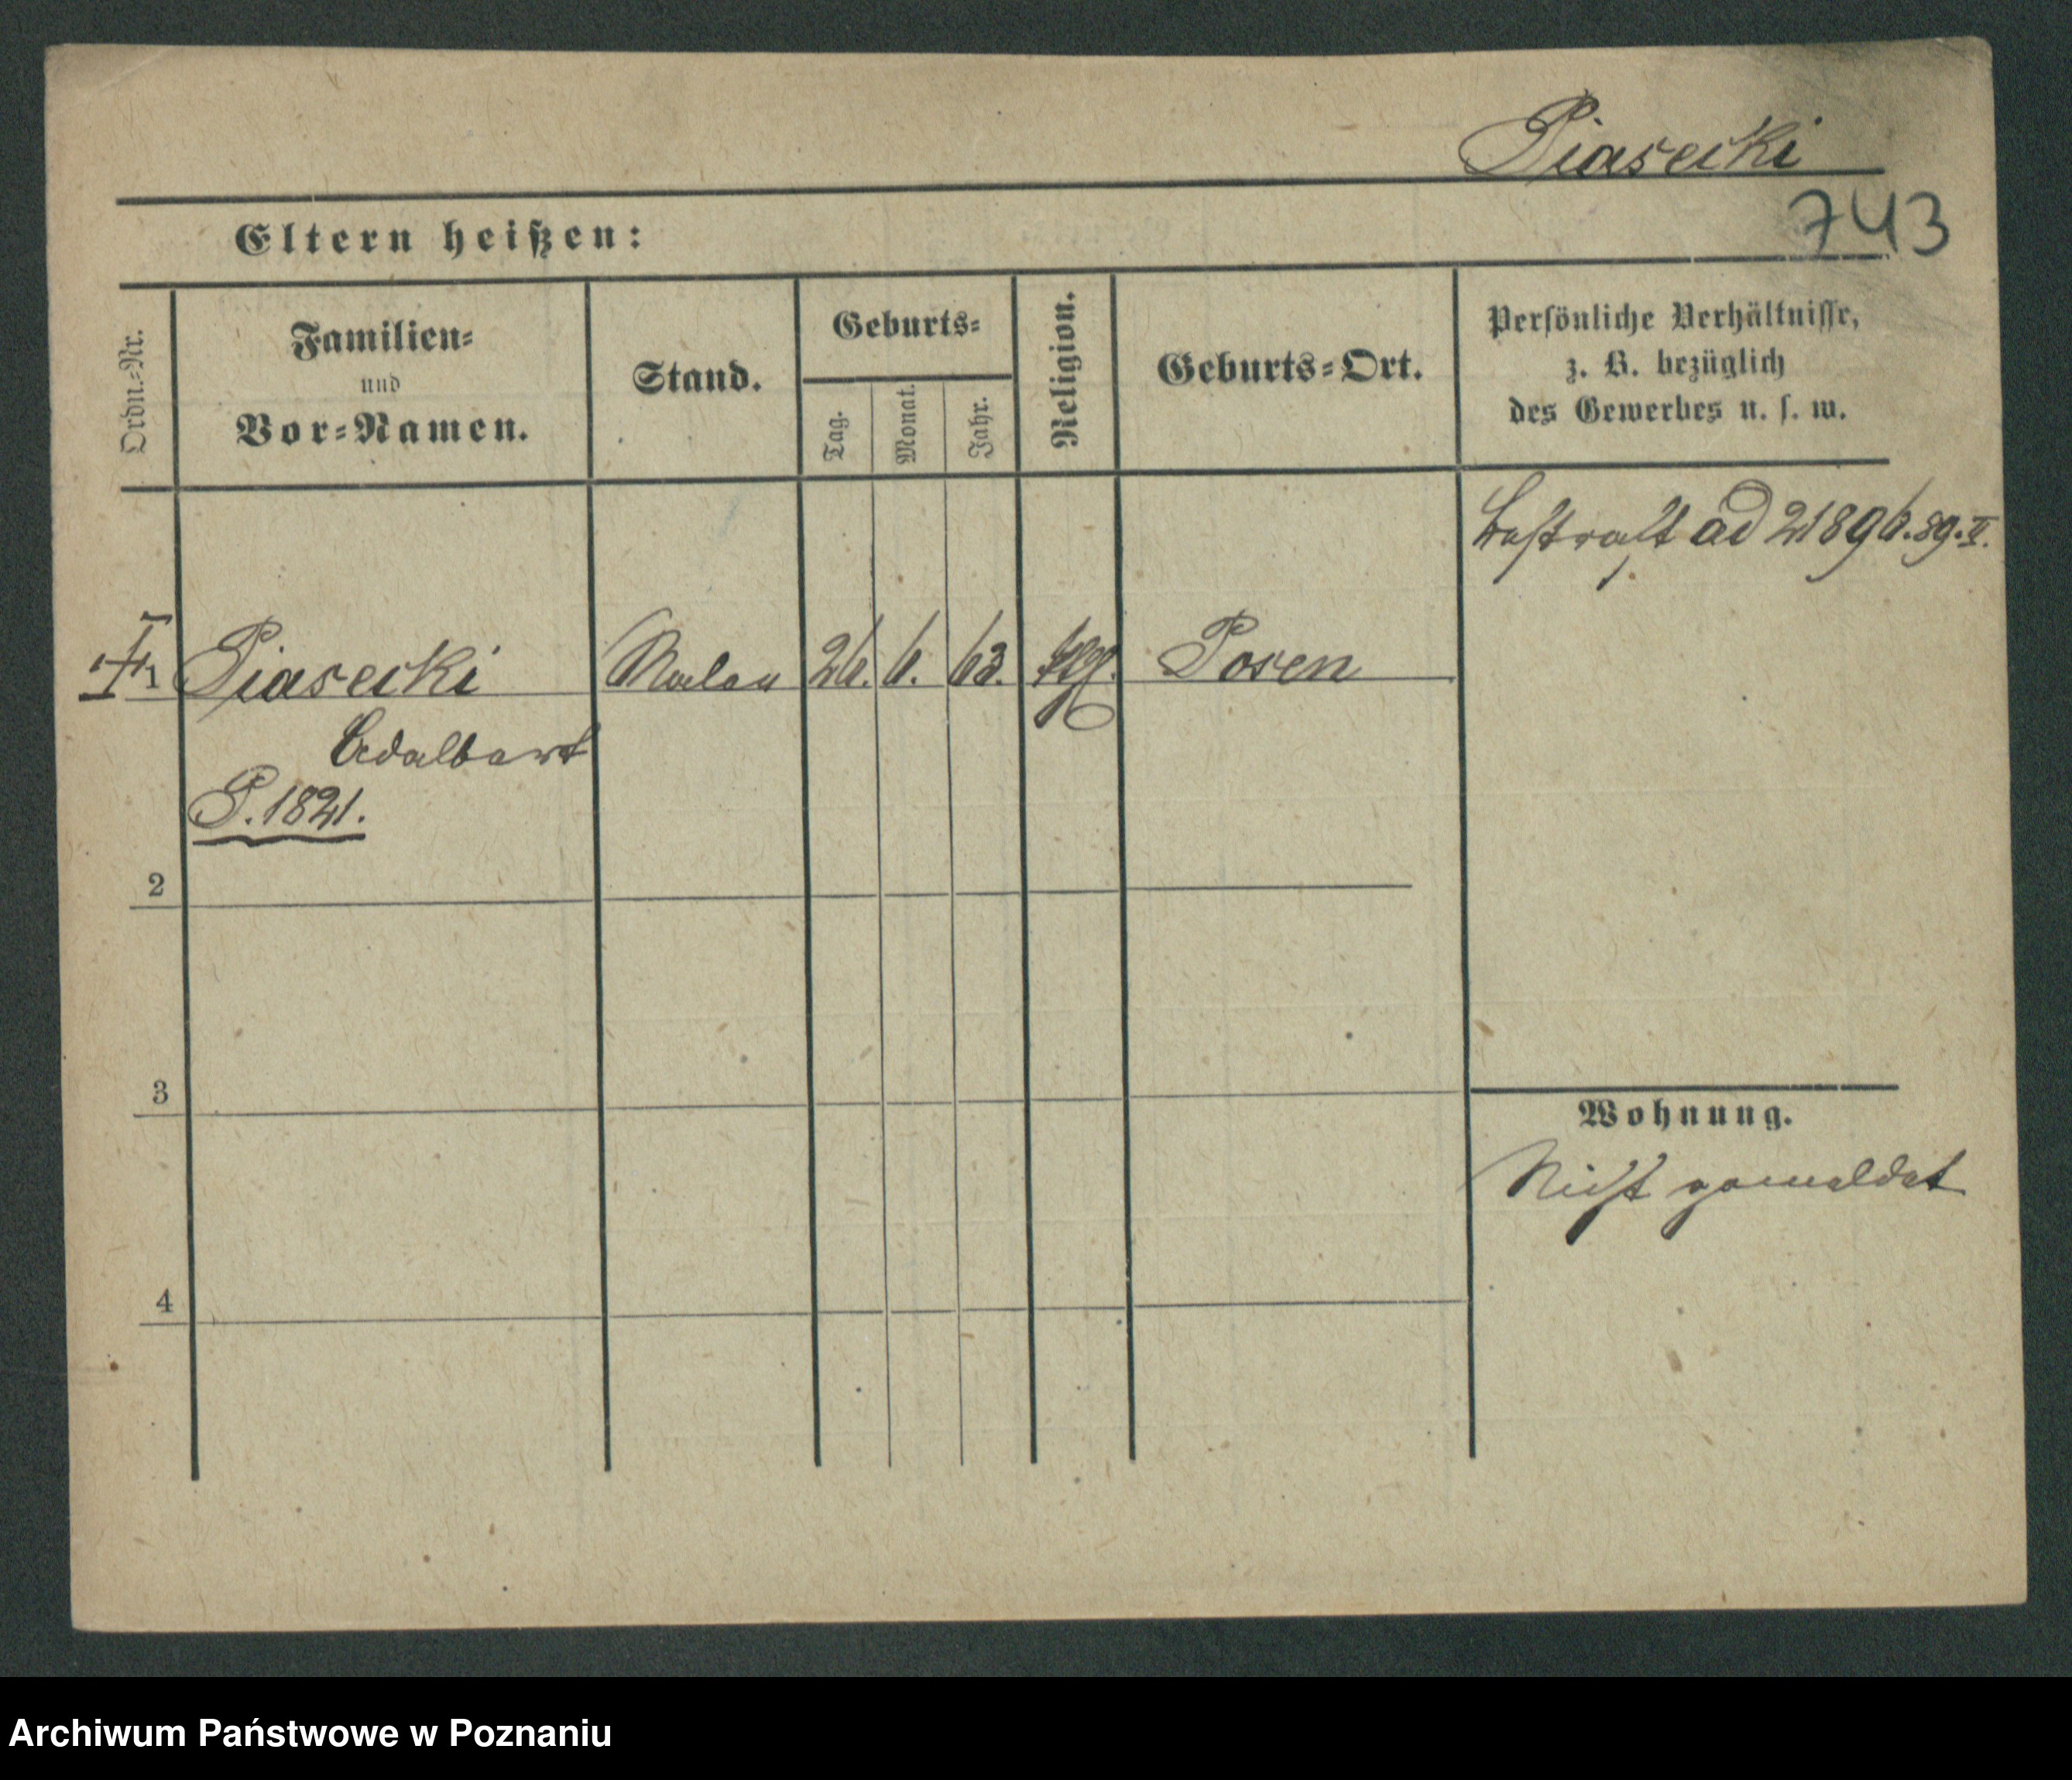 Piasecki
743
Eltern heißen:
Ordn.-Nr.
Familien-
und
Vor-Namen.
Stand.
Geburts-
Tag.
Monat.
Jahr.
Religion.
Geburts-Ort.
Persönliche Verhältnisse,
z. B. bezüglich
des Gewerbes u. s. w.
bestraft ad 21896.89.II.
1 Piasecki Maler 26. 6. 63. Posen
Adalbert
P. 1821.
2
3
Wohnung.
Nicht gemeldet
4
Archiwum Państwowe w Poznaniu